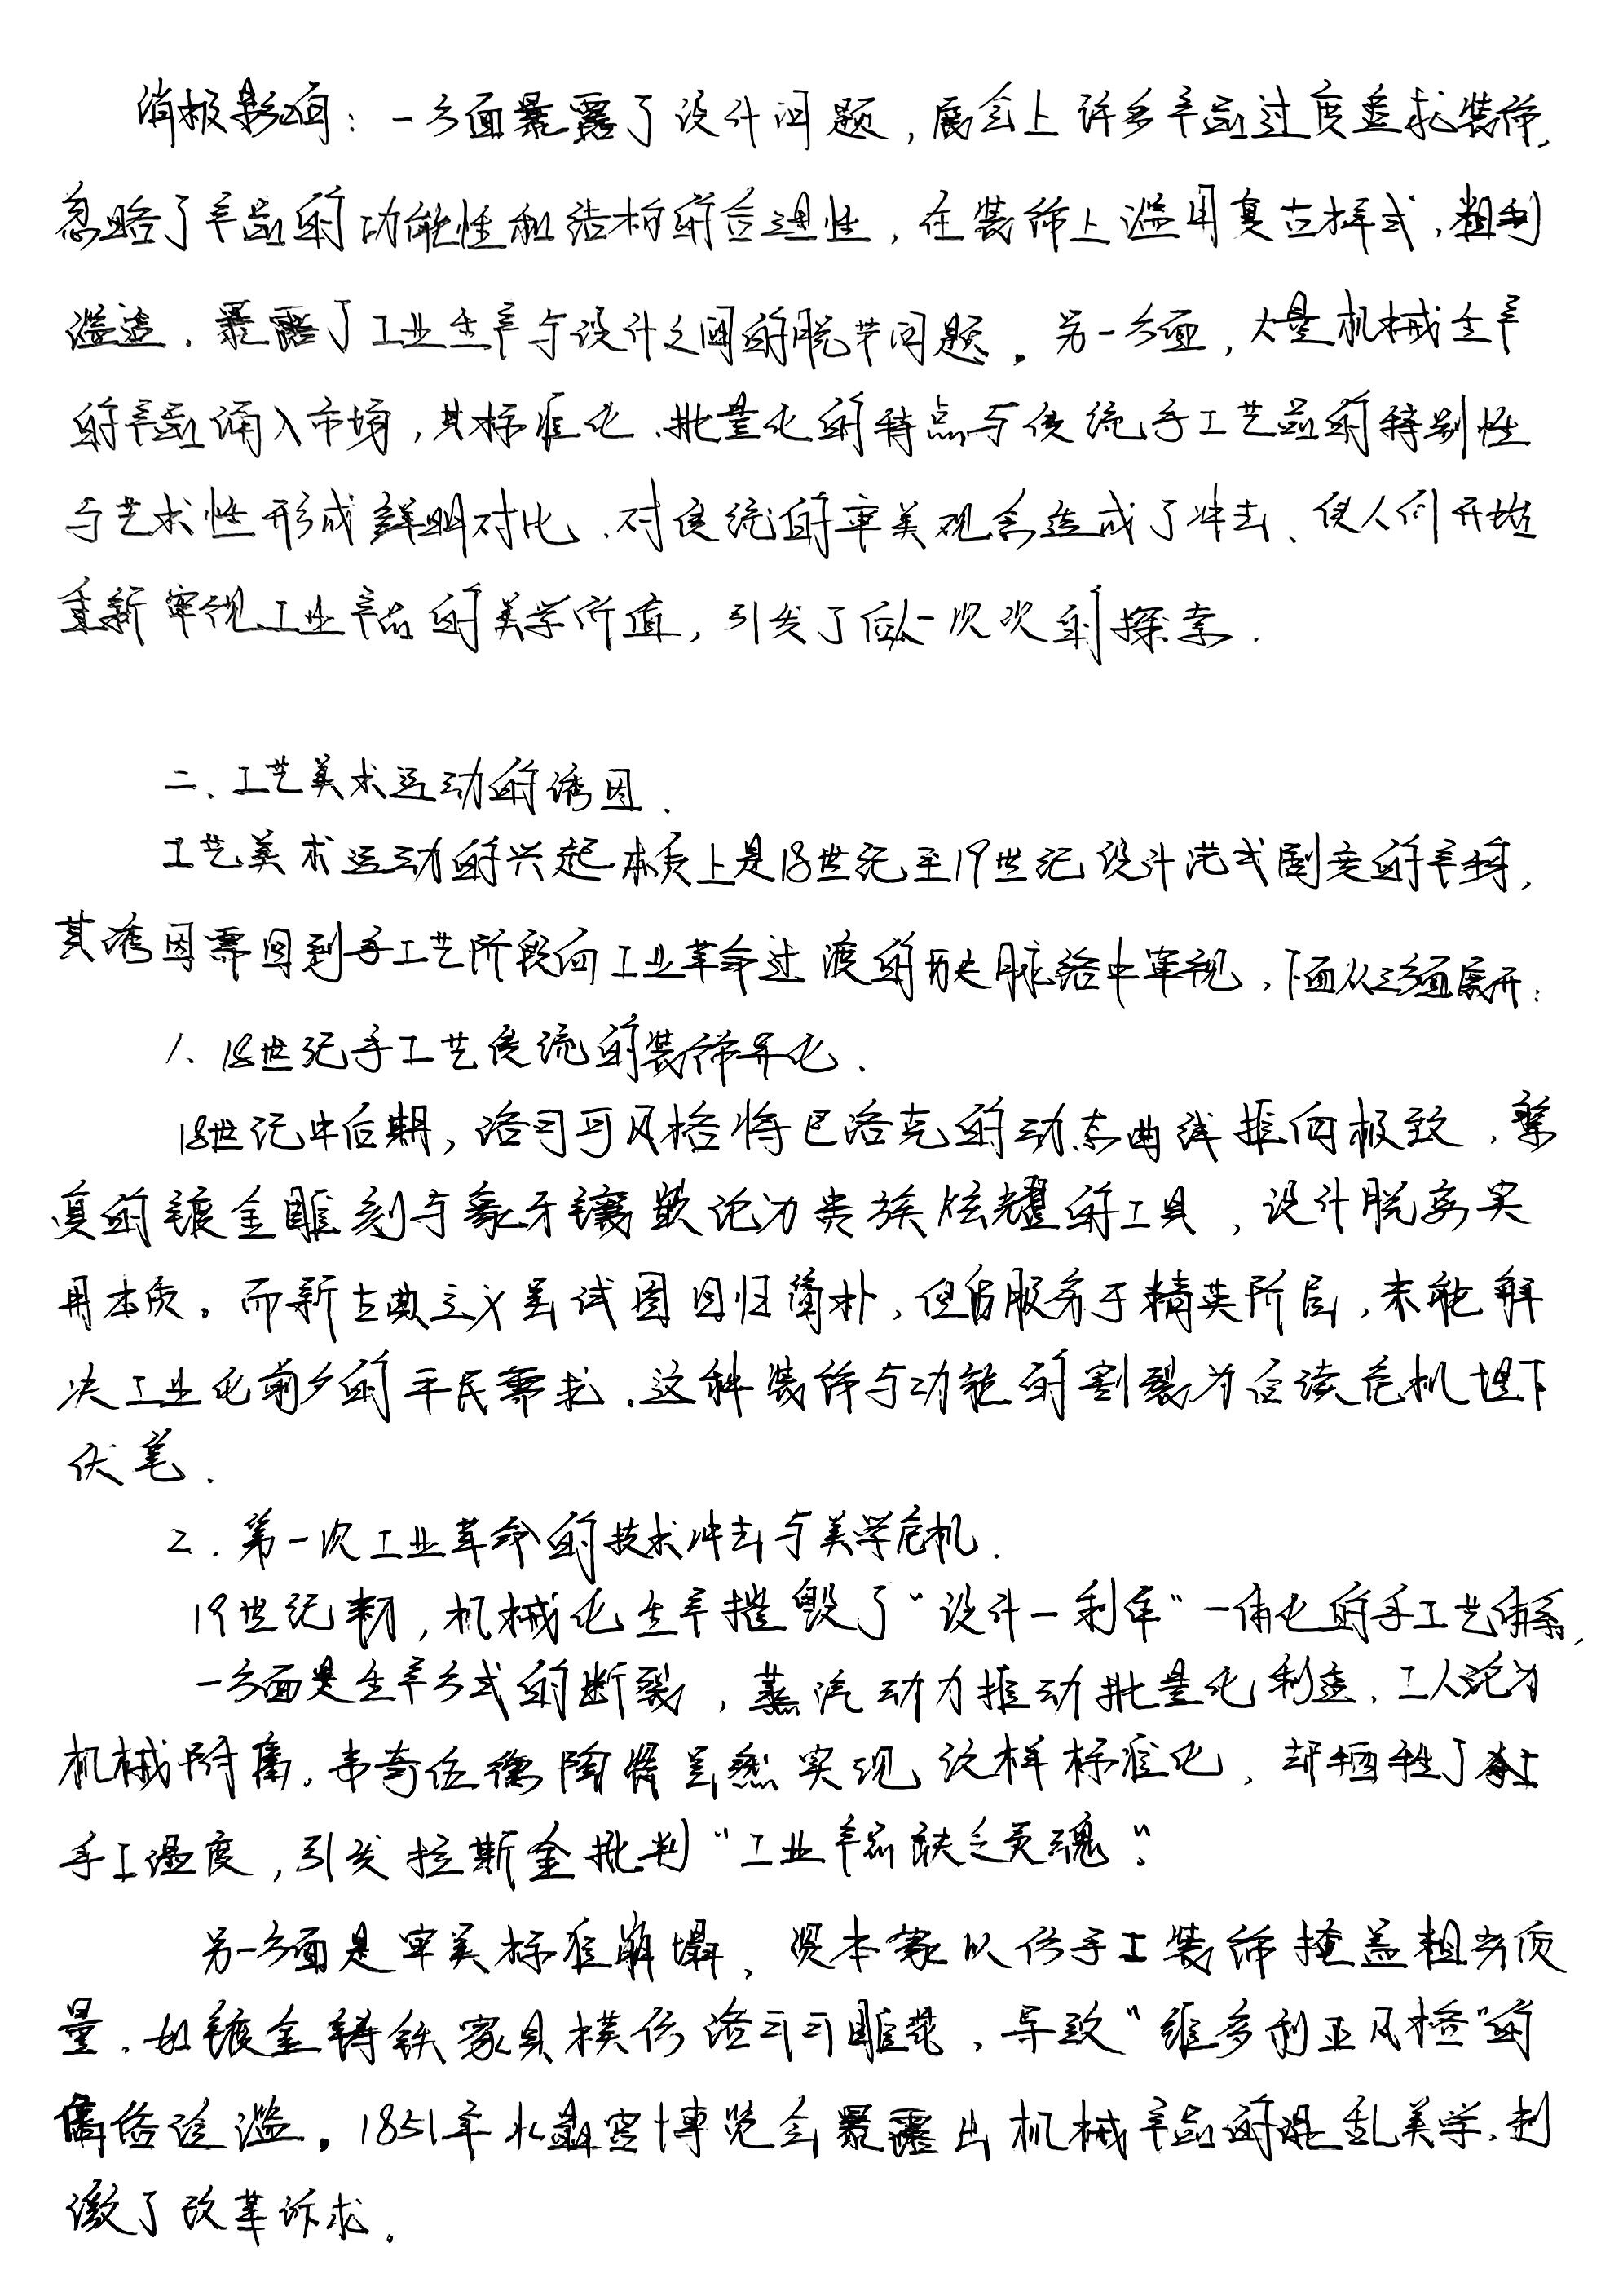 消极影响：一方面暴露了设计问题，展会上许多产品过度追求装饰，
忽略了产品的功能性和结构的合理性，在装饰上滥用复古样式，粗制
滥造，暴露了工业生产与设计之间的脱节问题。另一方面，大量机械生产
的产品涌入市场，其标准化、批量化的特点与传统手工艺品的特别性
与艺术性形成鲜明对比，对传统的审美观念造成了冲击，使人们开始
重新审视工业产品的美学价值，引发了后人一次次的探索.
二、工艺美术运动的诱因.
工艺美术运动的兴起本质上是18世纪至19世纪设计范式剧变的产物，
其诱因需回到手工艺阶段向工业革命过渡的历史脉络中审视，下面从三方面展开：
1、18世纪手工艺传统的装饰异化.
18世纪中后期，洛可可风格将巴洛克的动态曲线推向极致，繁
复的镀金雕刻与象牙镶嵌沦为贵族炫耀的工具，设计脱离实
用本质。而新古典主义虽试图回归简朴，但仍服务于精英阶层，未能解
决工业化前夕的平民需求.这种装饰与功能的割裂为后续危机埋下
伏笔.
2.第一次工业革命的技术冲击与美学危机.
19世纪初，机械化生产摧毁了“设计一制作”一体化的手工艺体系，
一方面是生产方式的断裂，蒸汽动力推动批量化制造，工人沦为
机械附庸，韦奇伍德陶瓷虽然实现纹样标准化，却牺牲了
手工温度，引发拉斯金批判“工业产品缺乏灵魂”。
另一方面是审美标准崩塌，资本家以仿手工装饰掩盖粗劣质
量，如镀金铸铁家具模仿洛可可雕花，导致“维多利亚风格”的
庸俗泛滥。1851年水晶宫博览会暴露出机械产品的混乱美学，刺
激了改革诉求.